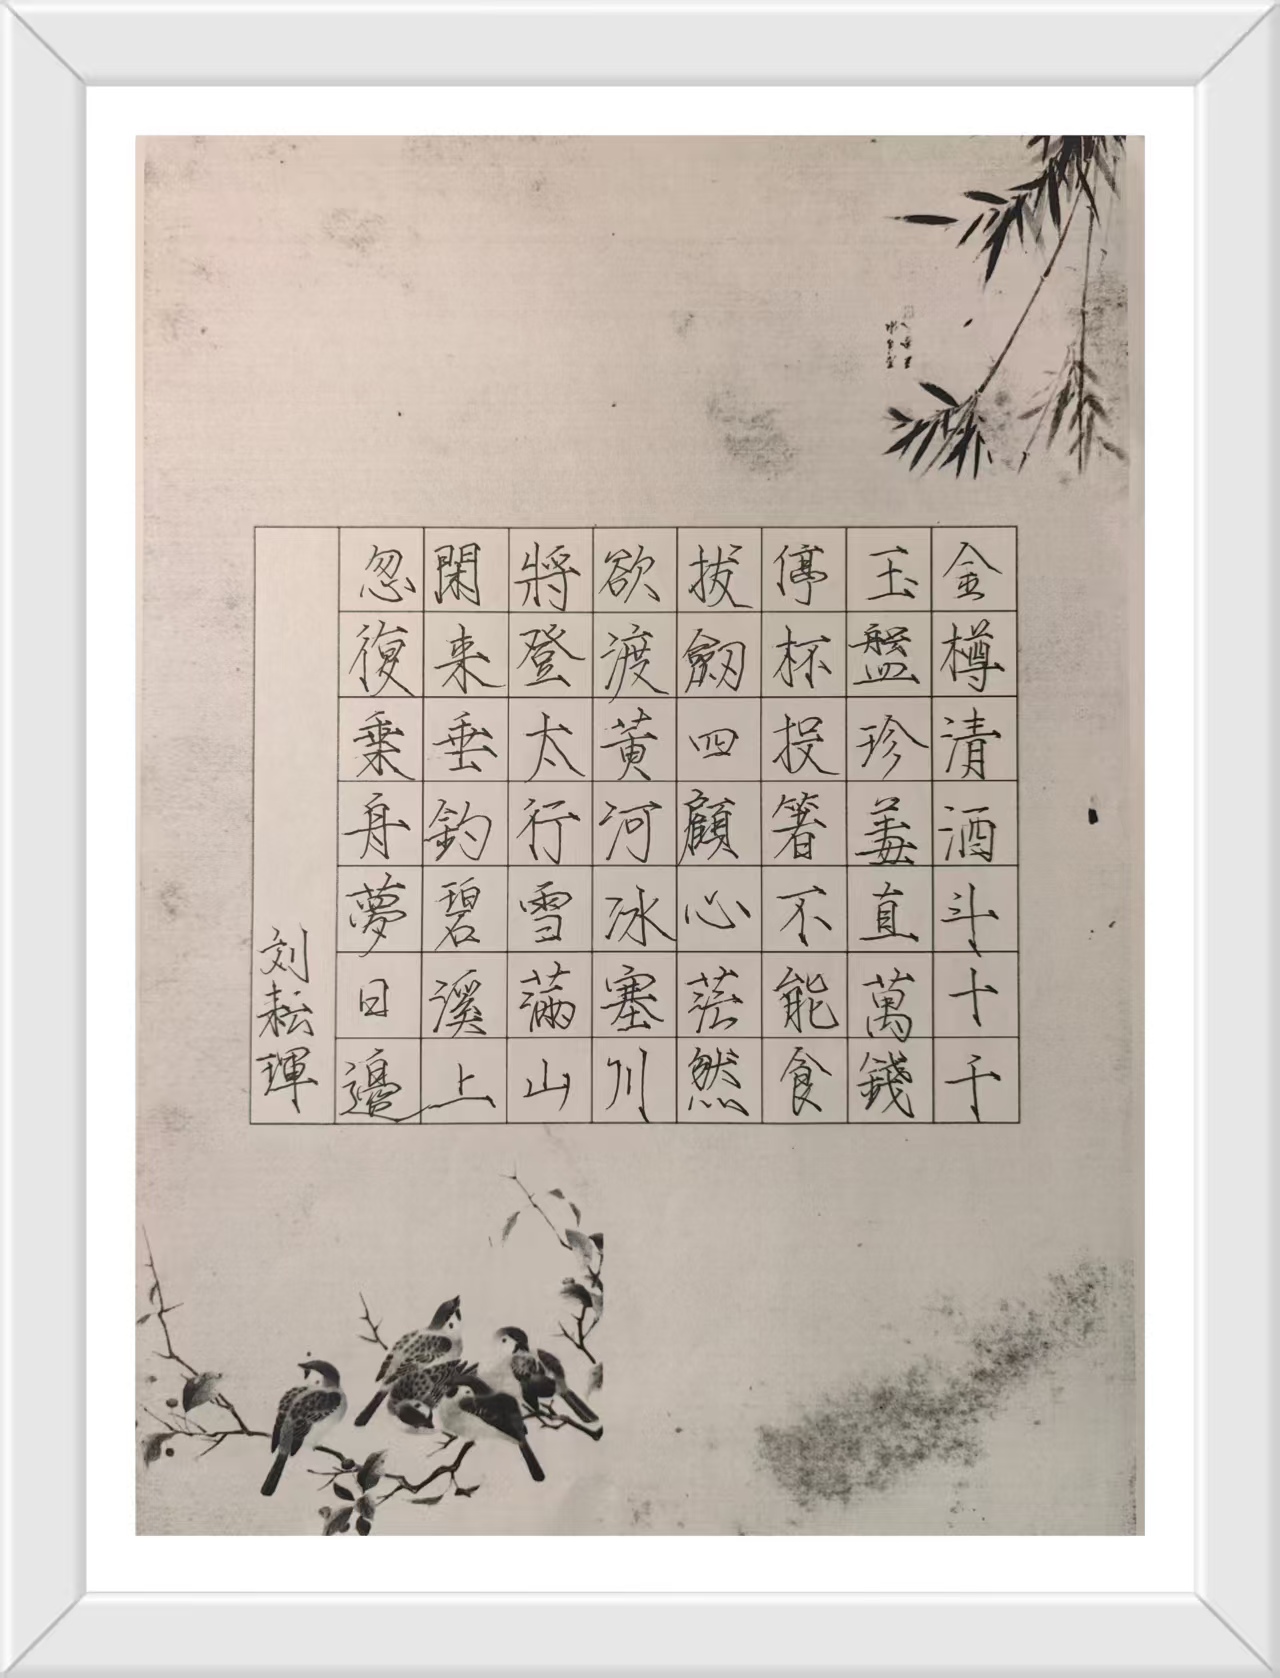 金樽清酒斗十千
玉盤珍羞直萬錢
停杯投箸不能食
拔劒四顧心茫然
欲渡黃河冰塞川
將登太行雪滿山
閑来垂釣碧溪上
忽復乗舟夢日邊
刘耘琿